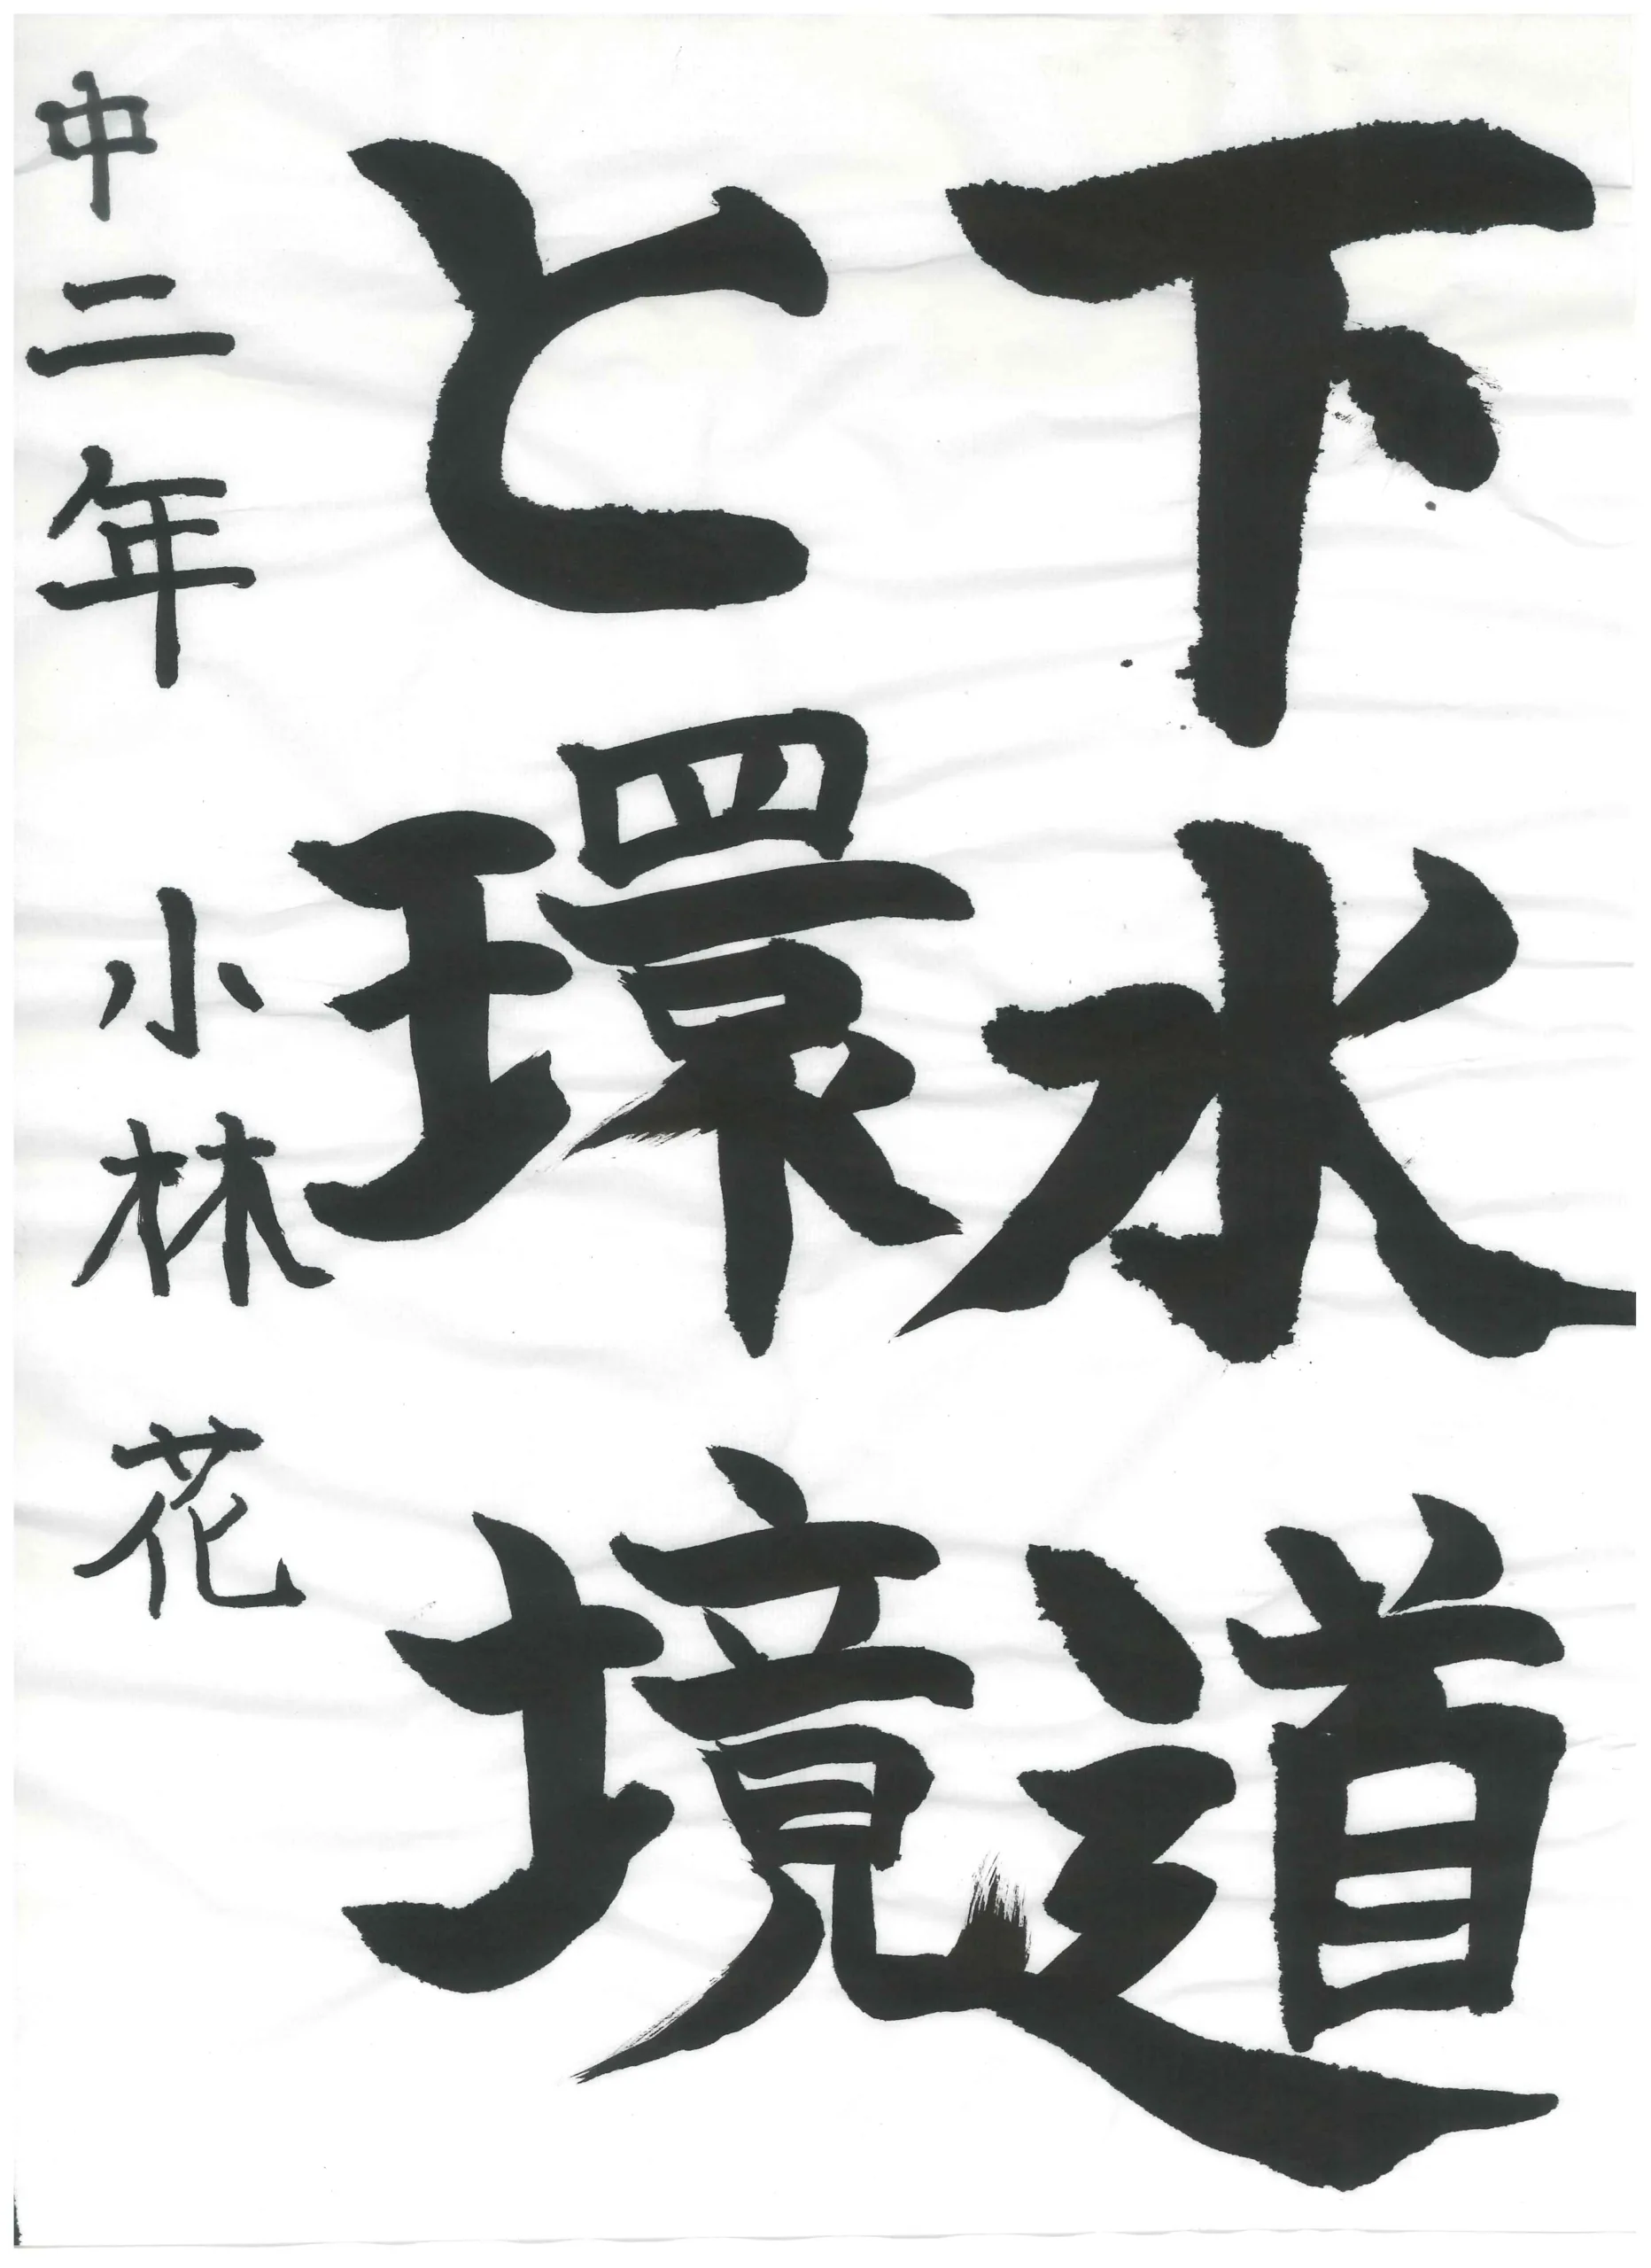 下水道
と環境
中二年 小林 花